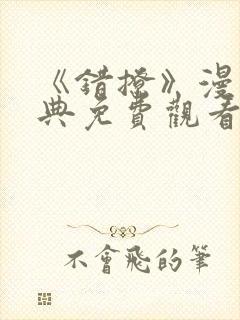 《錯撩》漫
典免費觀看
不會飛的筆